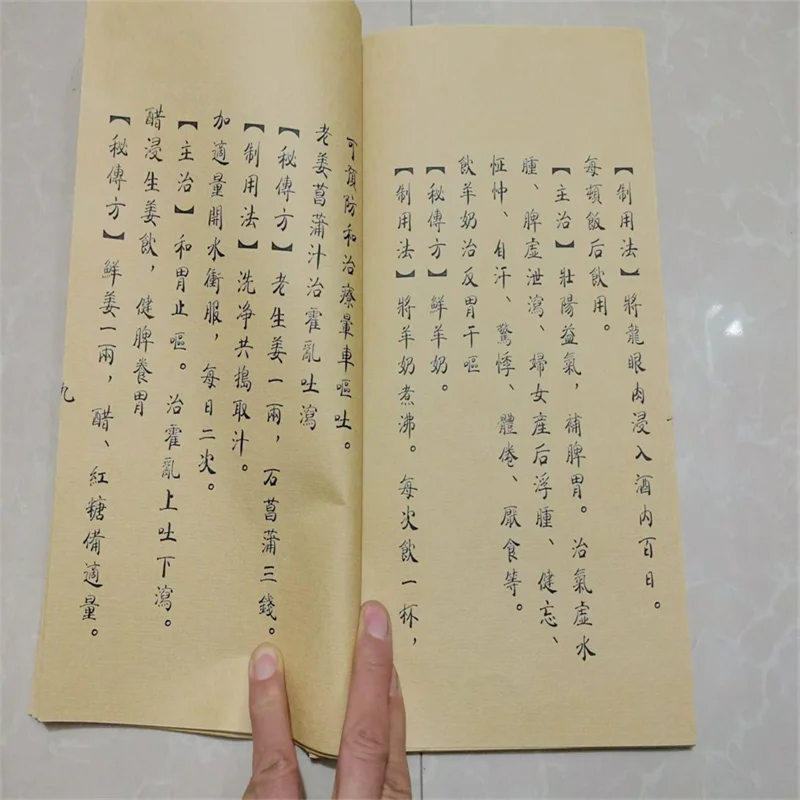 【制用法】將龍眼肉浸入酒內百日。
每頓飯后飲用。
【主治】壯陽益氣，補脾胃。治氣虛水
腫、脾虛泄瀉、婦女産后浮腫、健忘、
怔忡、自汗、驚悸、體倦、厭食等。
飲羊奶治反胃干嘔
【秘傳方】鮮羊奶。
【制用法】將羊奶煮沸。每次飲一杯，
可預防和治療暈車嘔吐。
老姜菖蒲汁治霍亂吐瀉
【秘傳方】老生姜一兩，石菖蒲三錢。
【制用法】洗净共搗取汁。
加適量開水衝服，每日二次。
【主治】和胃止嘔。治霍亂上吐下瀉。
醋浸生姜飲，健脾養胃
【秘傳方】鮮姜一兩，醋、紅糖備適量。
九